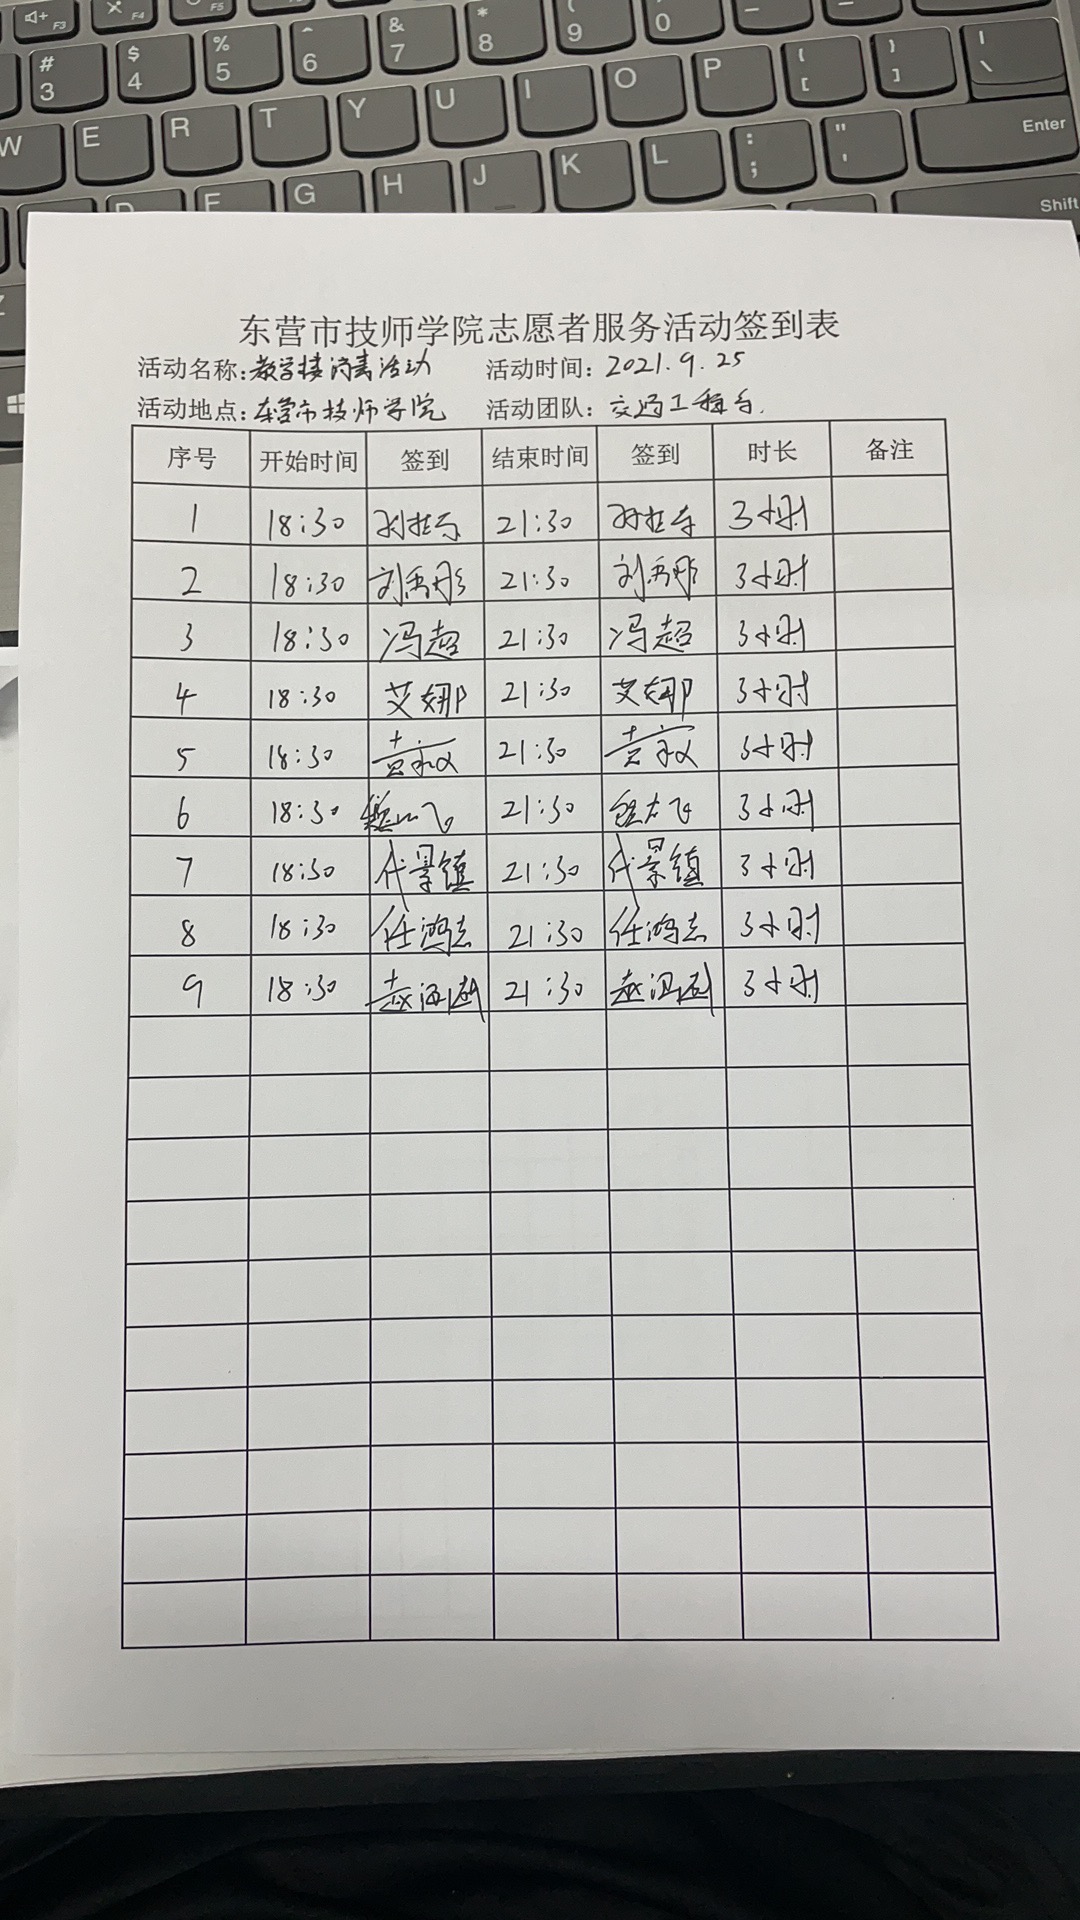 F3 F4 F5
# 3 $ 4 % 5 ^ 6 & 7 * 8 ( 9 0
W E R T Y U I O P { [ } ] | \
F G H J K L : ; " ' Enter
Shift
东营市技师学院志愿者服务活动签到表
活动名称:教学楼清洁活动 活动时间:2021.9.25
活动地点:东营市技师学院 活动团队:交通工程系
序号 开始时间 签到 结束时间 签到 时长 备注
1 18:30 21:30 3小时
2 18:30 21:30 3小时
3 18:30 冯超 21:30 冯超 3小时
4 18:30 艾娜 21:30 艾娜 3小时
5 18:30 21:30 3小时
6 18:30 21:30 3小时
7 18:30 代景镇 21:30 代景镇 3小时
8 18:30 任鸿志 21:30 任鸿志 3小时
9 18:30 21:30 3小时